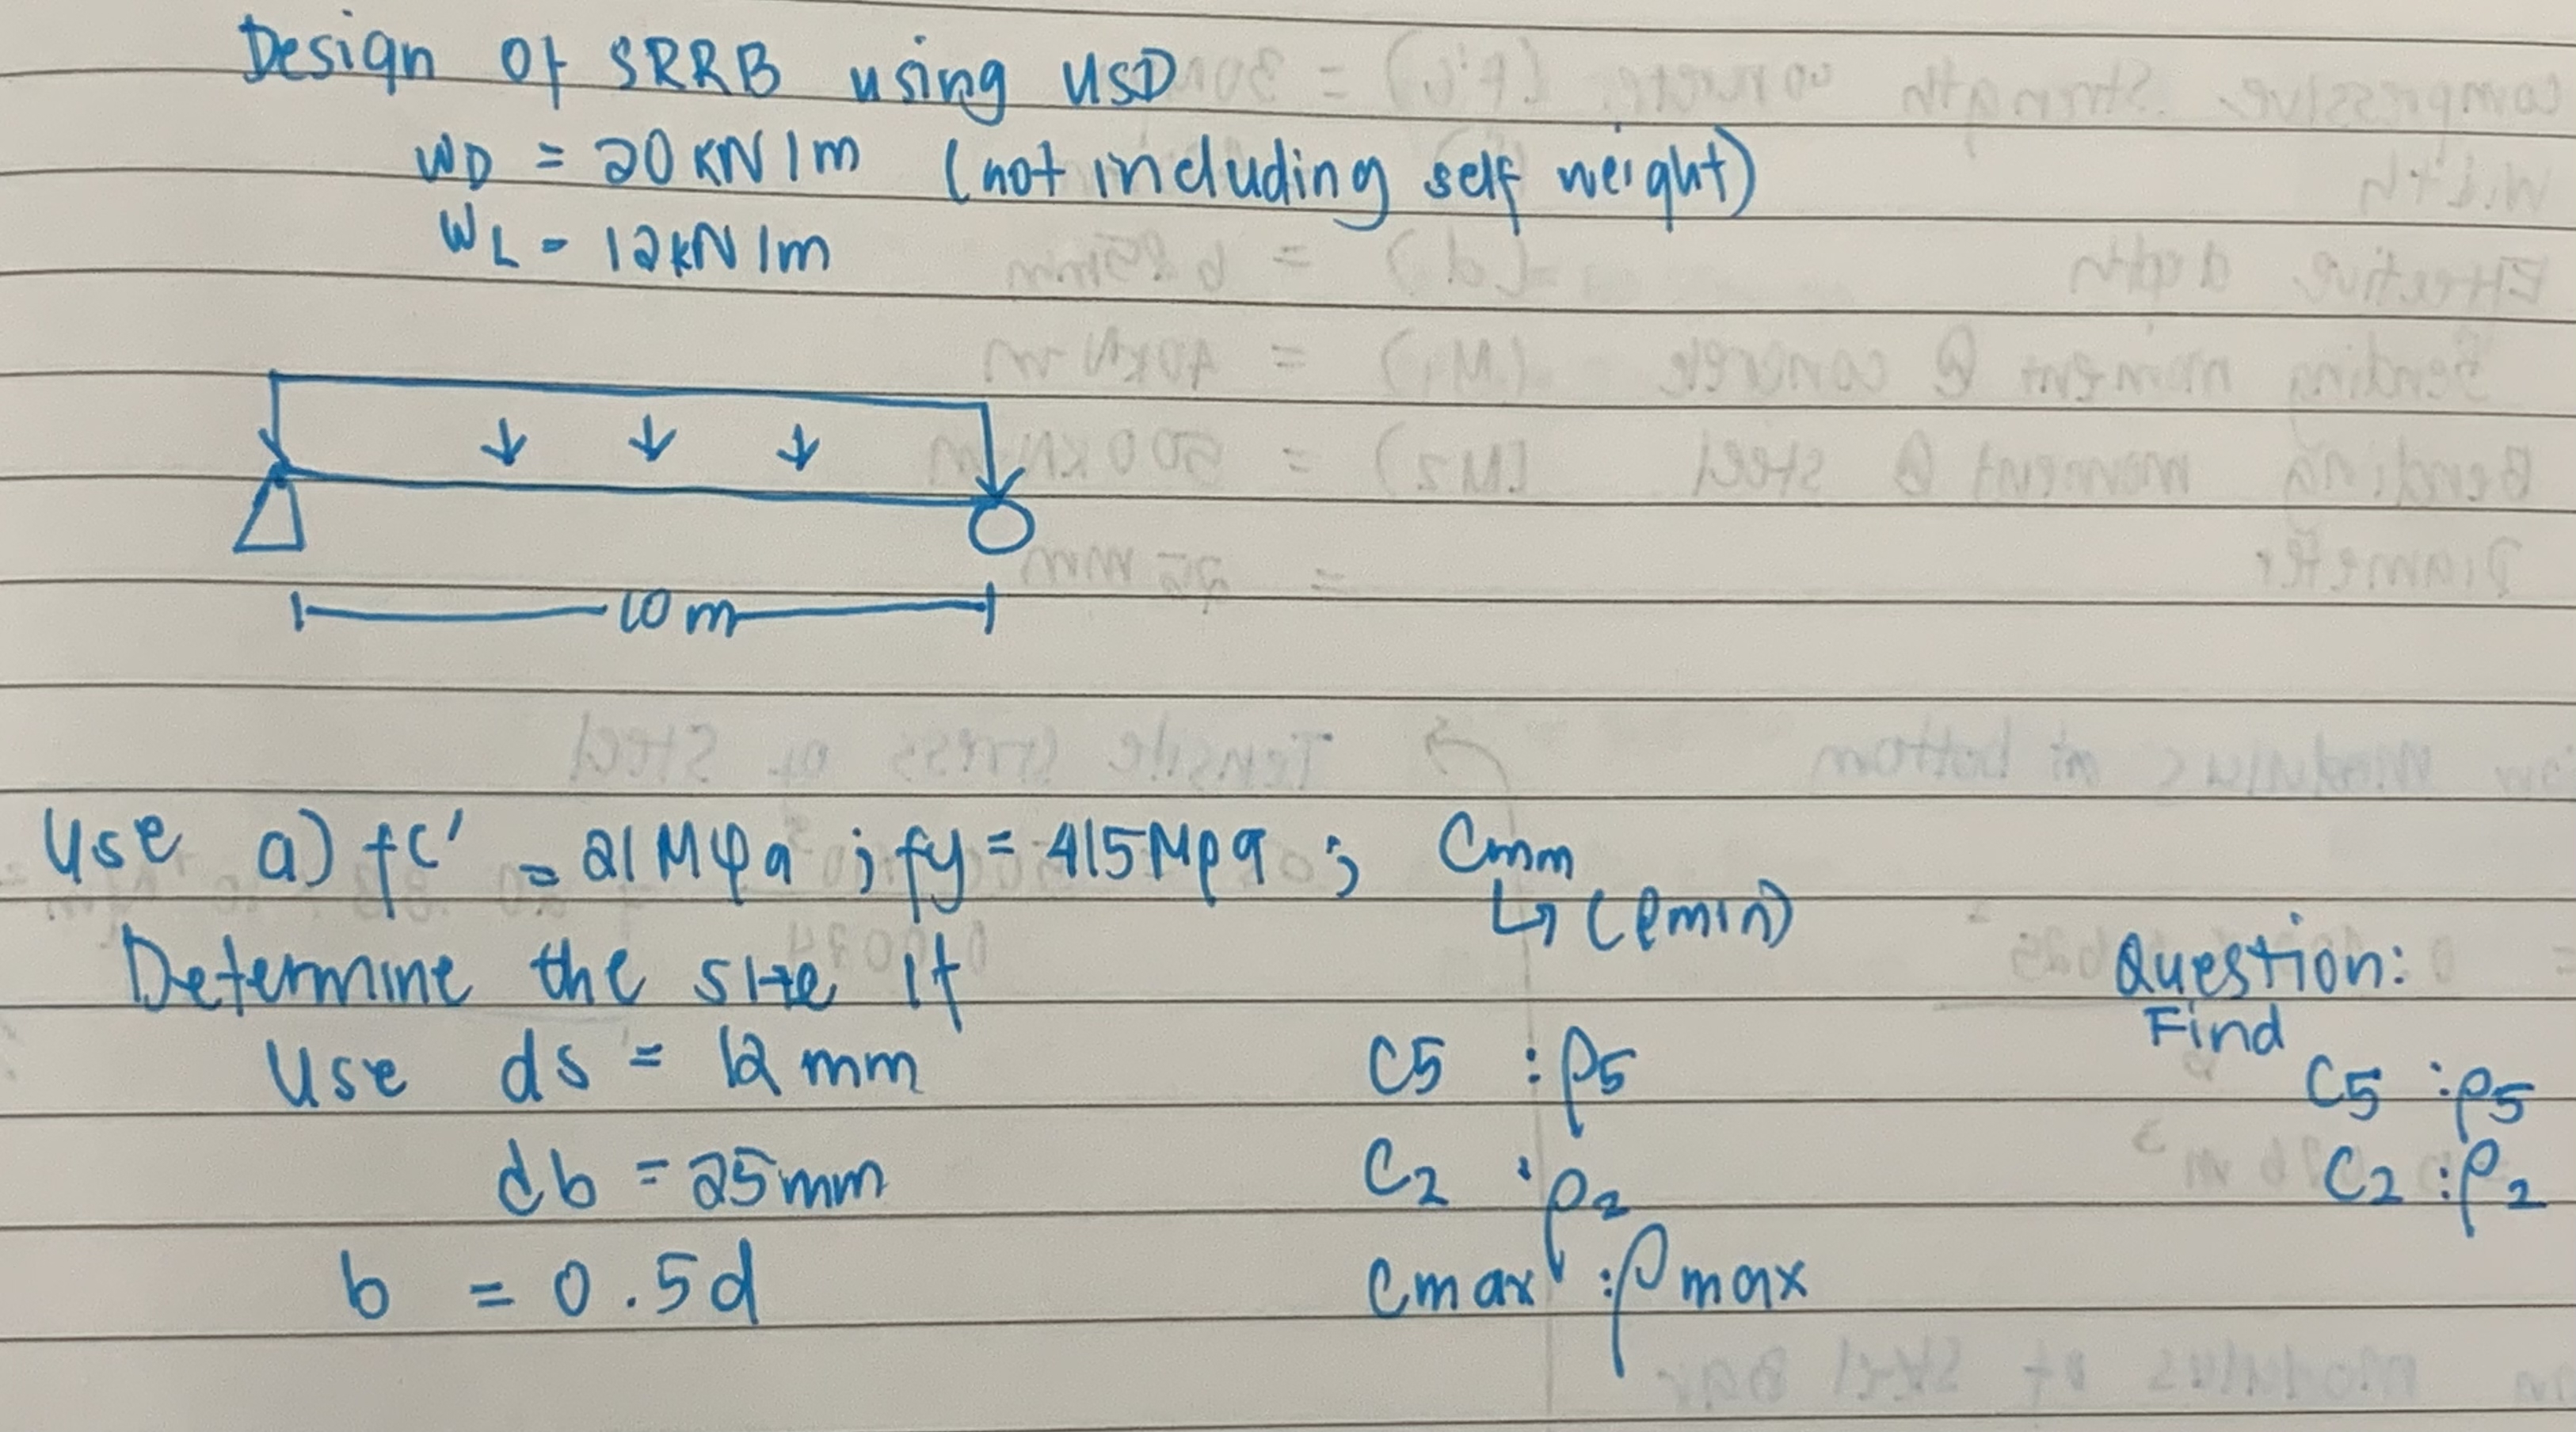 Design of SRRB using USD
WD = 20 KN/m (not including self weight)
WL = 12kN/m
10 m
Use a) fc' = 21 Mpa ; fy = 415 Mpa ; Cmm
↳ (ρmin)
Determine the size if
Use ds = 12 mm
db = 25mm
b = 0.5d
C5 : ρ5
C2 : ρ2
Cmax : ρmax
Question:
Find
C5 : ρ5
C2 : ρ2